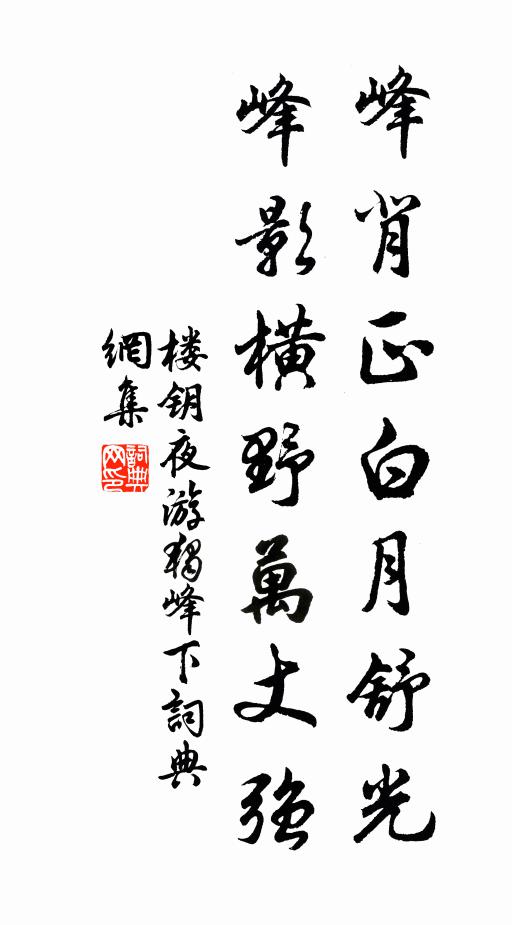 峰背正白月舒光
峰影橫野萬丈強
楼钥夜游独峰下詞典
網集
詞典
网印